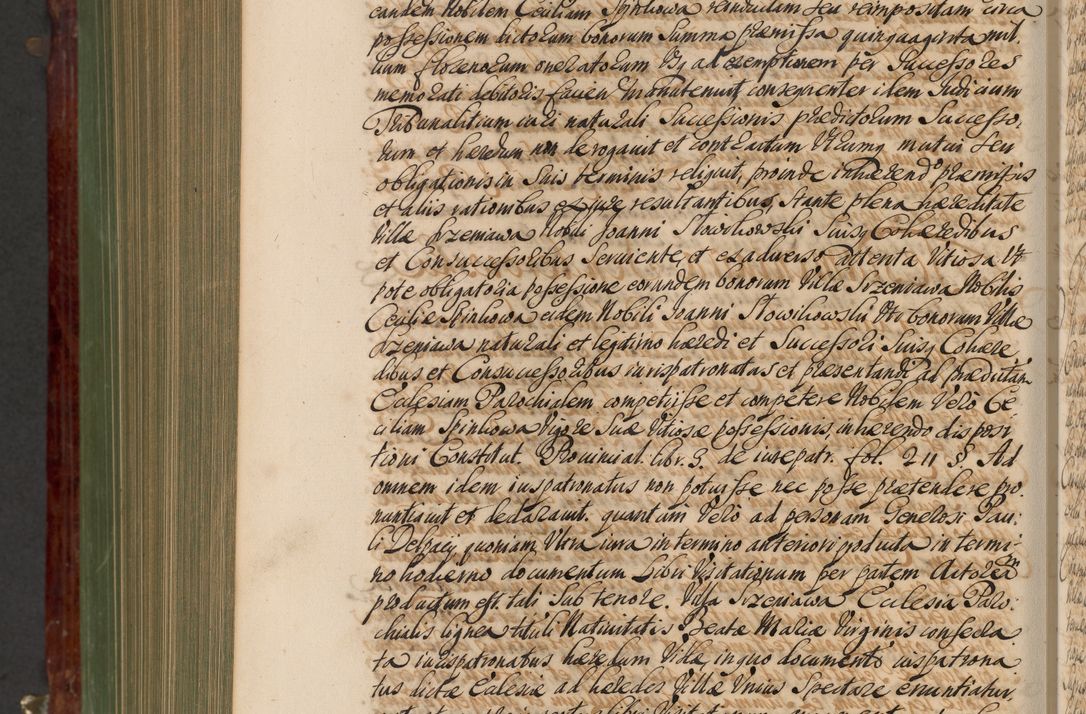 eandem Nobilem Ceciliam Spinkowa reinductam seu reimpositam circa
possessionem dictorum bonorum Summa præmissa quinquaginta mil,
lium florenorum oneratorum Usq ad exemptionem per Successores
memorati debitoris faciend manutenuit consequenter idem Iudicium
Tribunalitium iuri naturali Successionis prædictorum Successo,
rum et hæredum non derogavit et contractum Utrumq mutui seu
obligationis in Suis terminis reliquit, proinde inhærend præmissis
et aliis rationibus ex iure resultantibus, stante plena hæreditate
Villæ Srzeniawa Nobili Joanni Slowikowski Suisq Cohæredibus
et Consuccessoribus Serviente, et ex adverso attenta Vitiosa Ut
pote obligatoria possessione eorundem bonorum Villæ Srzeniawa Nobilis
Ceciliæ Spinkowa eidem Nobili Joanni Slowikowski Uti bonorum Villæ
Srzeniawa naturali et legitimo hæredi et Successori Suisq Cohære,
dibus et Consuccessoribus iurispatronatus et præsentandi ad prædictam
Ecclesiam Parochialem competiisse et competere Nobilem Verò Ce
ciliam Spinkowa Vigore Suæ Vitiosæ possessionis, inhærendo disposi
tioni Constitut. Provincial. libr. 3. de iurepatr. fol. 211 §. Ad
omnem idem iuspatronatus non potuisse nec posse prætendere pro,
nuntiavit et declaravit. quantum Verò ad personam Generosi Pau,
li Delpacij quoniam Ultra iura in termino anteriori producta in termi,
no hodierno documentum Libri Visitationum per partem Actoream
productum est. tali sub tenore. Villa Srzeniawa Ecclesia Paro,
chialis lignea tituli Nativitatis Beatæ Mariæ Virginis consecra
ta iurispatronatus hæredum Villæ, in quo documento iuspatrona
tus dictæ Ecclesiæ ad hæredes Villæ Unius Spectare enuntiatur